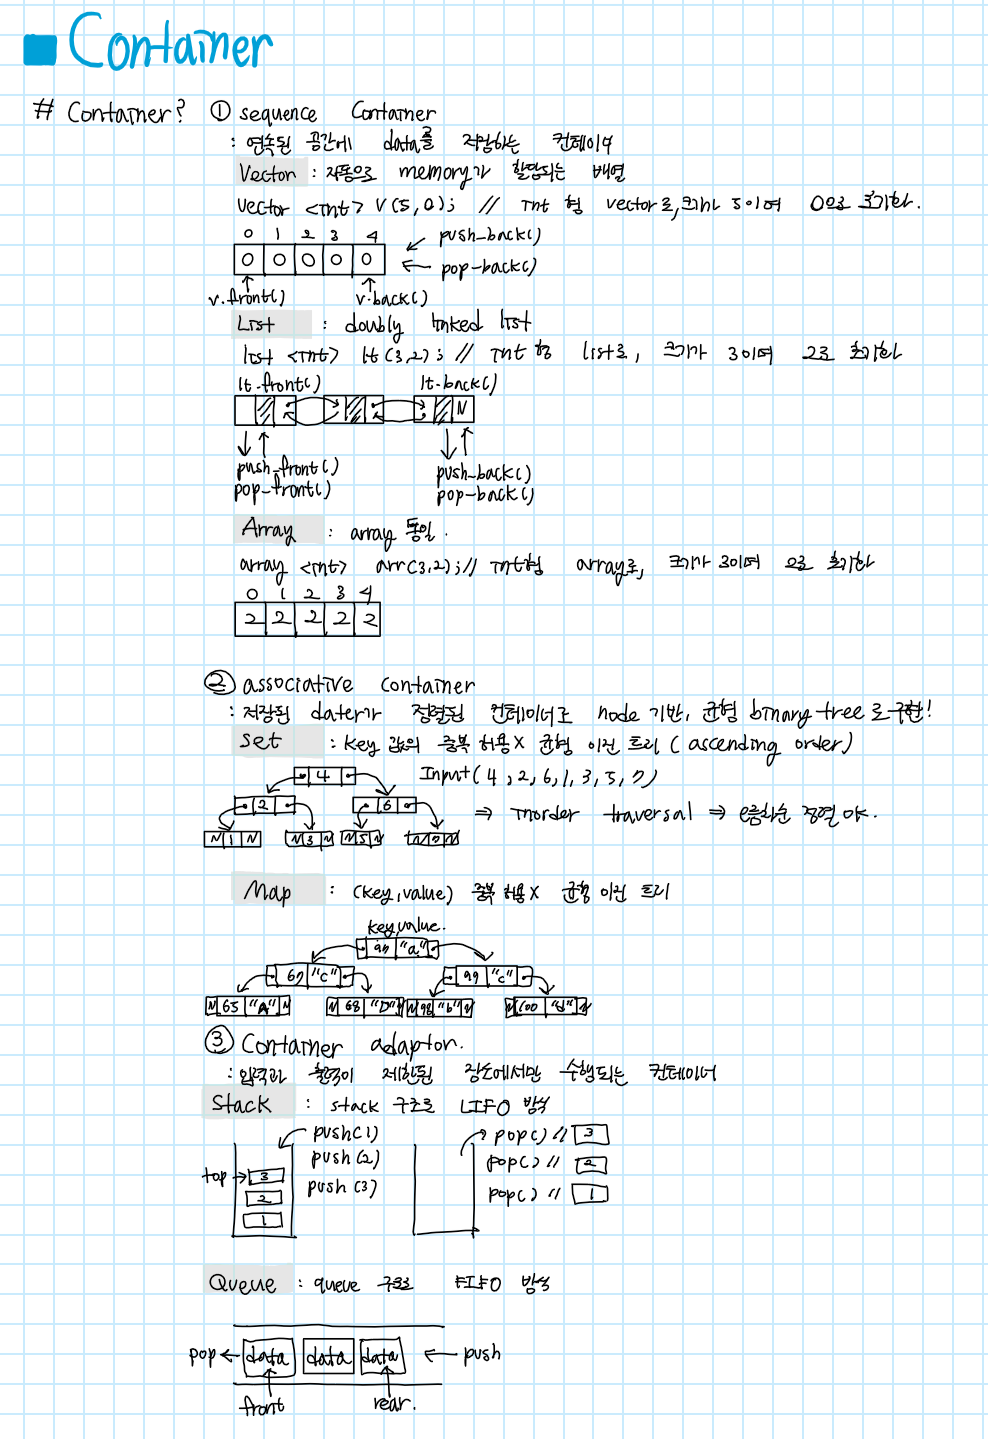 Container
# Container? ① sequence Container
: 연속된 공간에 data를 저장하는 컨테이너
Vector : 자동으로 memory가 할당되는 배열
vector <int> v(5,0); // int 형 vector로, 크기가 5이며 0으로 초기화.
0 1 2 3 4
push_back()
0 0 0 0 0
pop-back()
v.front() v.back()
List : doubly linked list
list <int> lt(3,2); // int 형 list로, 크기가 3이며 2로 초기화
lt.front() lt.back()
N
push_front() push_back()
pop_front() pop-back()
Array : array 동일.
array <int> arr(3,2); // int형 array로, 크기가 3이며 으로 초기화
0 1 2 3 4
2 2 2 2 2
② associative container
: 저장된 data가 정렬된 컨테이너로 node 기반, 균형 binary tree로 구현!
Set : key 값의 중복 허용X 균형 이진 트리 (ascending order)
4 Input(4, 2, 6, 1, 3, 5, 7)
2 6 ⇒ inorder traversal ⇒ 오름차순 정렬
N 1 N N 3 N N 5 N N 7 N
Map : (key, value) 중복 허용X 균형 이진 트리
key, value.
97 "a"
67 "C" 99 "c"
N 65 "A" N N 68 "D" N N 98 "b" N N 100 "d" N
③ Container adaptor.
: 입력과 출력이 제한된 장소에서만 수행되는 컨테이너
Stack : stack 구조로 LIFO 방식
push(1) pop() // 3
push(2) pop() // 2
top → 3 push(3) pop() // 1
2
1
Queue : queue 구조로 FIFO 방식
pop ← data data data ← push
front rear.